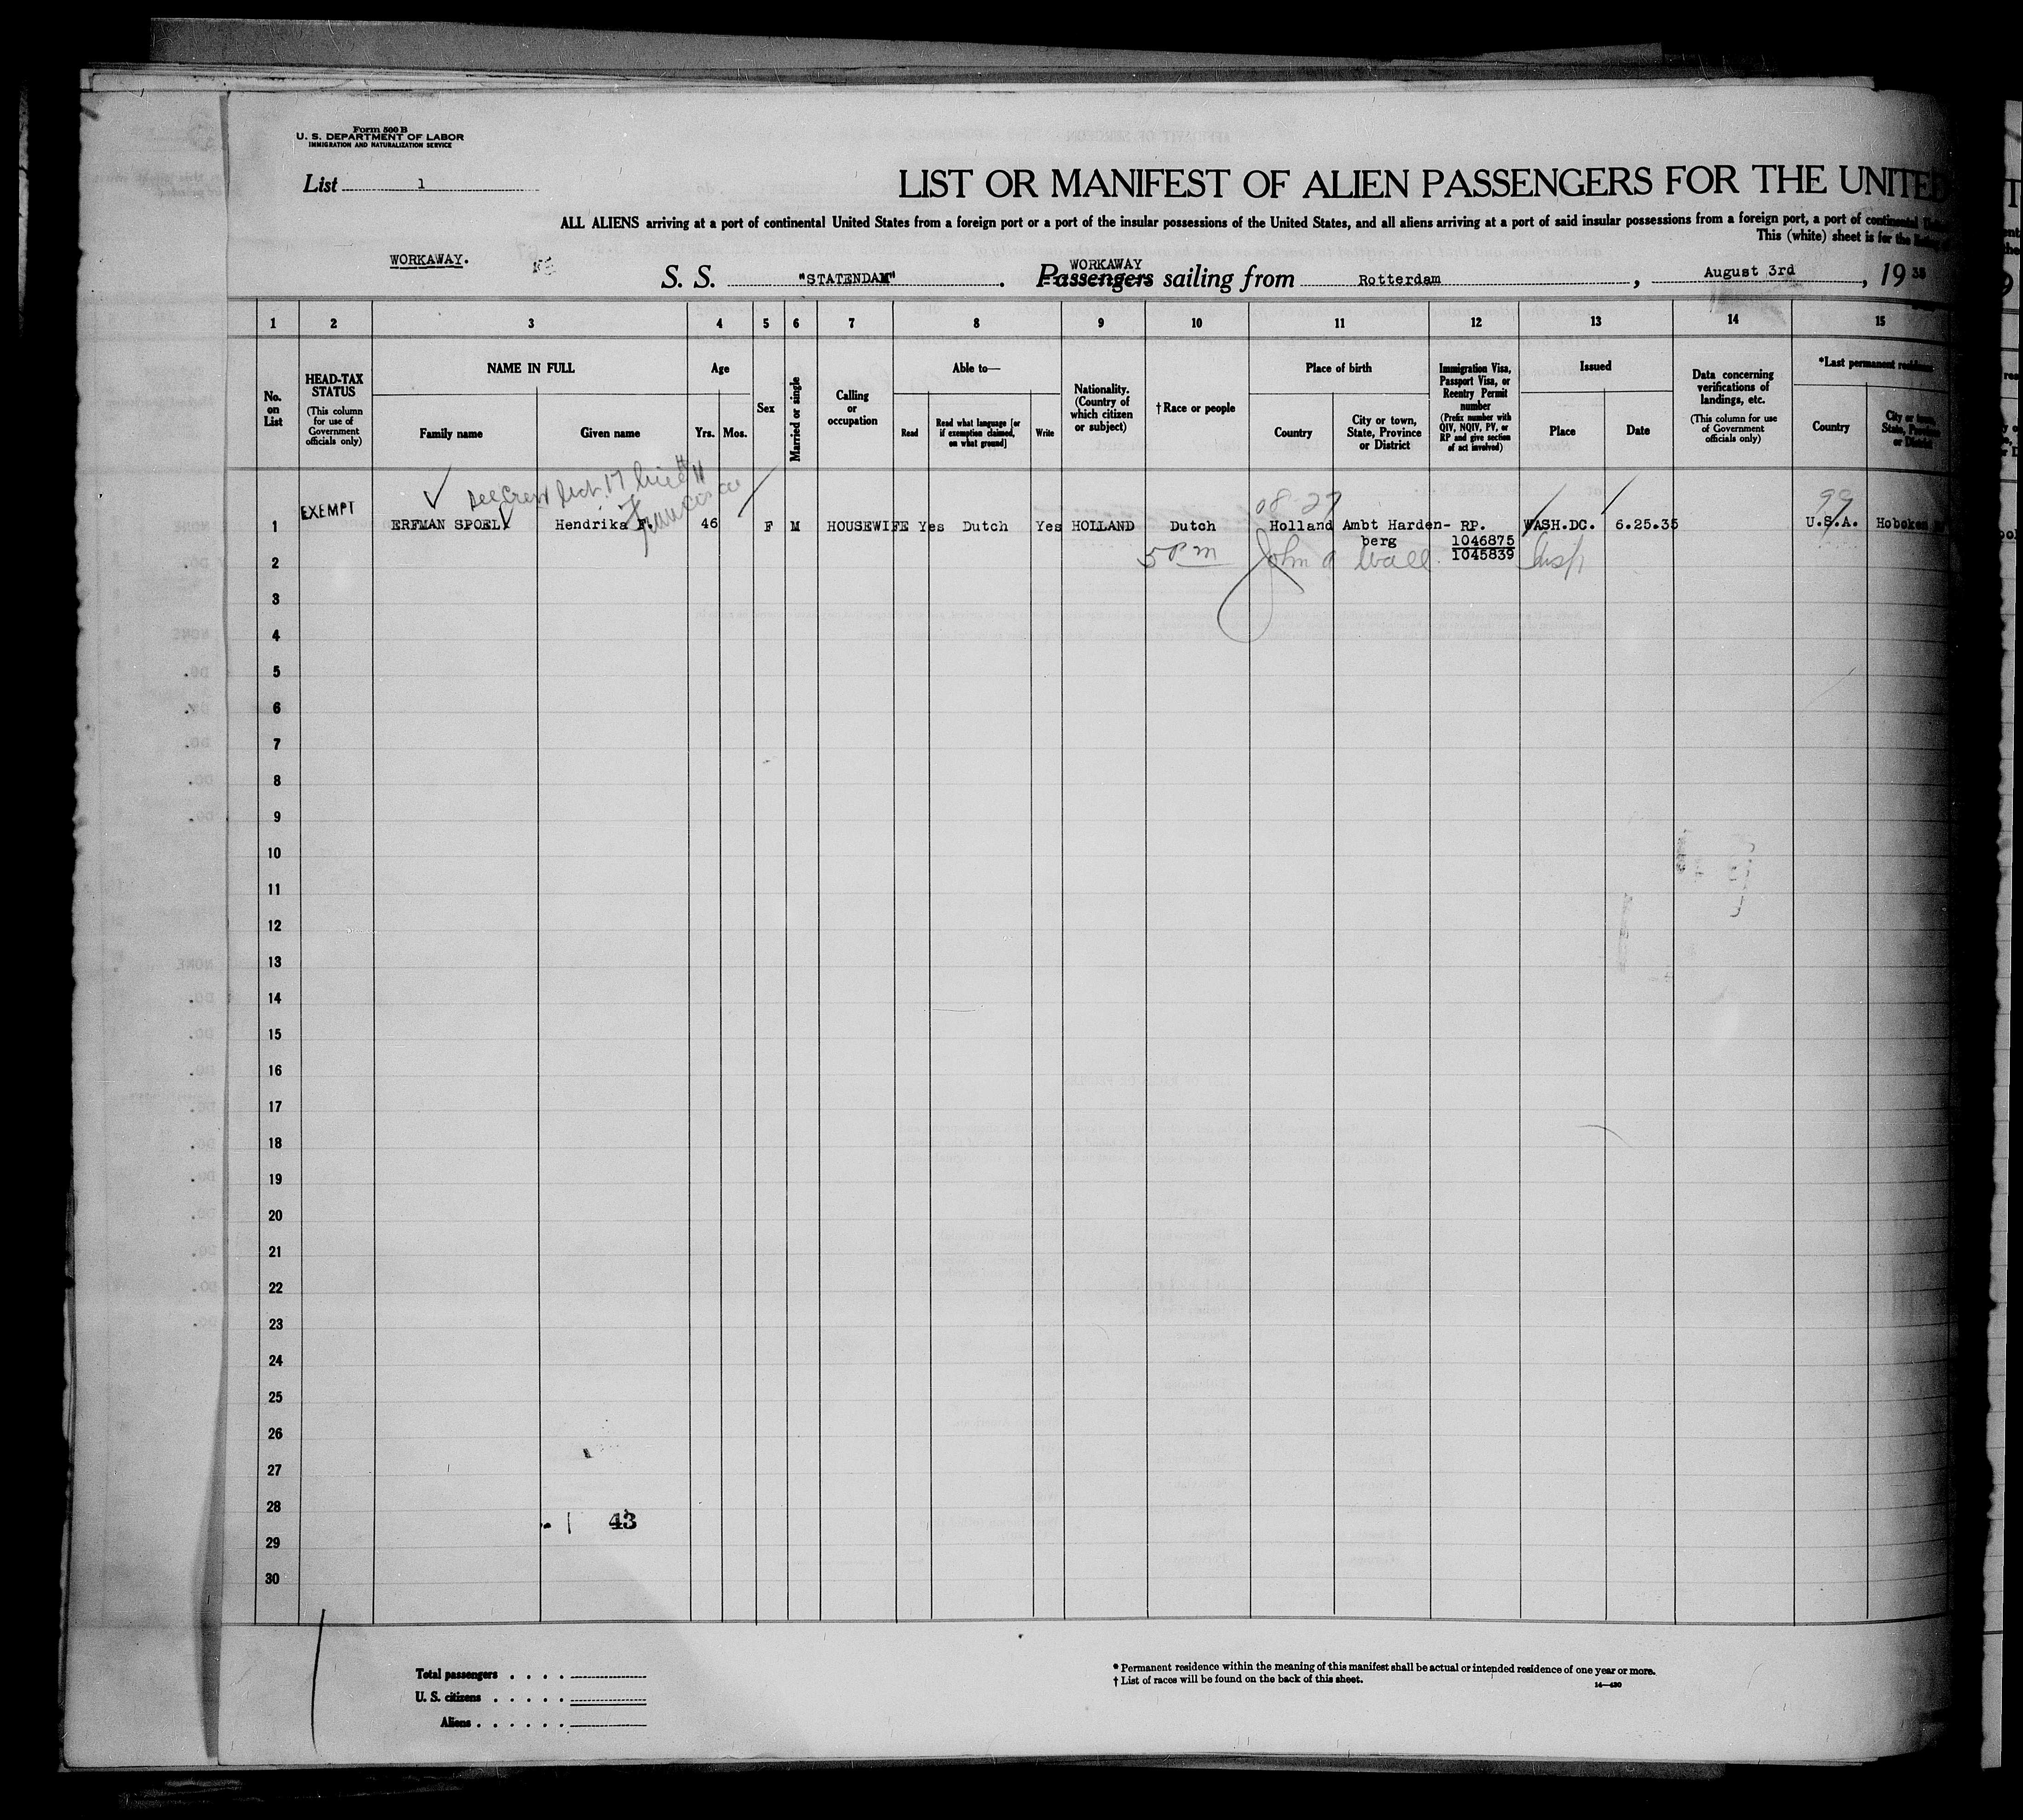 Form 500 B
U. S. DEPARTMENT OF LABOR
IMMIGRATION AND NATURALIZATION SERVICE
List 1
LIST OR MANIFEST OF ALIEN PASSENGERS FOR THE UNITED
ALL ALIENS arriving at a port of continental United States from a foreign port or a port of the insular possessions of the United States, and all aliens arriving at a port of said insular possessions from a foreign port, a port of continental
This (white) sheet is for the
WORKAWAY.
WORKAWAY
S. S. "STATENDAM". Passengers sailing from Rotterdam, August 3rd, 1935
1 2 3 4 5 6 7 8 9 10 11 12 13 14 15
No. on List
HEAD-TAX STATUS
(This column for use of Government officials only)
NAME IN FULL
Family name
Given name
Age
Yrs. Mos.
Sex
Married or single
Calling or occupation
Able to—
Read
Read what language [or if exemption claimed, on what ground]
Write
Nationality. (Country of which citizen or subject)
†Race or people
Place of birth
Country
City or town, State, Province or District
Immigration Visa, Passport Visa, or Reentry Permit number
(Prefix number with QIV, NQIV, PV, or RP and give section of act involved)
Issued
Place
Date
Data concerning verifications of landings, etc.
(This column for use of Government officials only)
*Last permanent
Country
City or town, State, Province or District
See Crew List 17 line # 11
Francisca
08-27
99
1 EXEMPT ERFMAN SPOEL Hendrika F. 46 F M HOUSEWIFE Yes Dutch Yes HOLLAND Dutch Holland Ambt Harden- RP. WASH.DC. 6.25.35 U.S.A. Hoboken
berg 1046875
1045839
2 5 PM John A Wall Insp
3
4
5
6
7
8
9
10
11
12
13
14
15
16
17
18
19
20
21
22
23
24
25
26
27
28
43
29
30
Total passengers
U. S. citizens
Aliens
* Permanent residence within the meaning of this manifest shall be actual or intended residence of one year or more.
† List of races will be found on the back of this sheet.
14—430